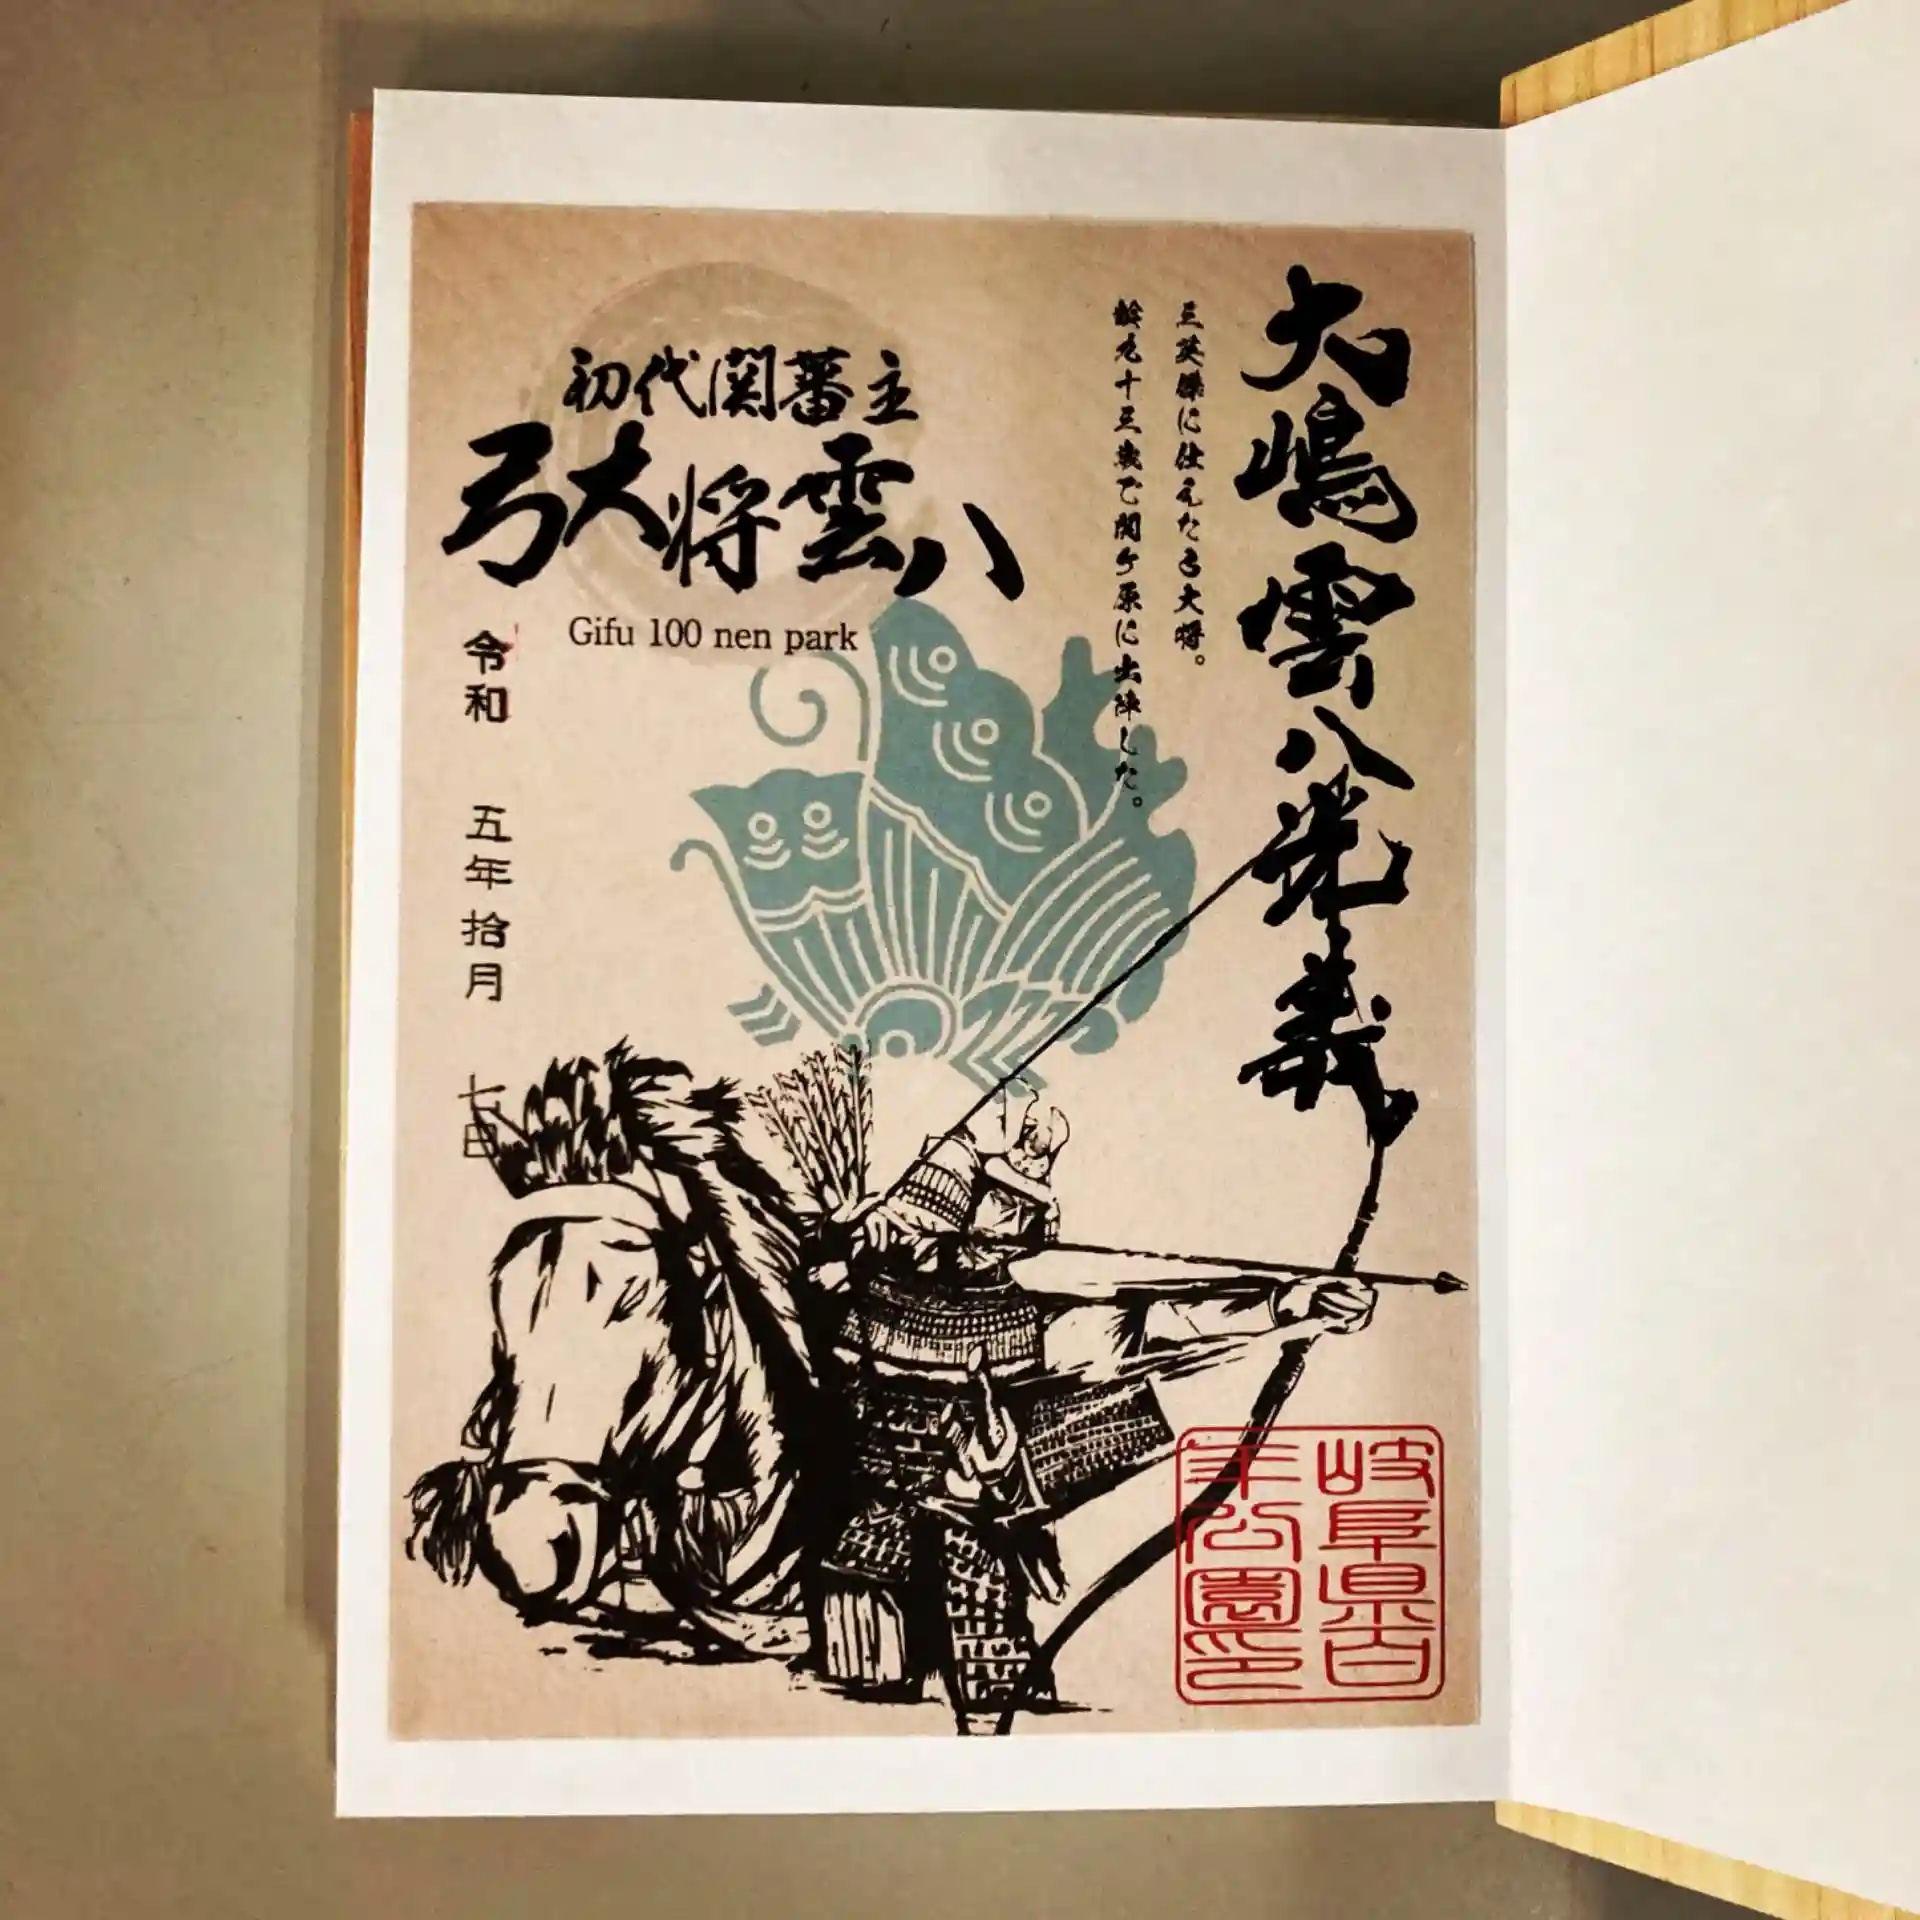 大嶋雲八光義
三英傑に仕えた弓大将。
齢九十三歳で関ケ原に出陣した。
初代関藩主
弓大将雲八
Gifu 100 nen park
令和 五年拾月 七日
岐阜県百
年公園印